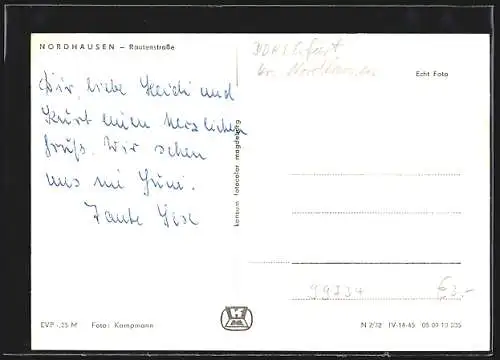 NORDHAUSEN – Rautenstraße
DDR Erfurt
Kr. Nordhausen
Echt Foto
Dir, liebe Heidi und
Kurt einen herzlichen
Gruß. Wir sehen
uns im Juni.
Tante Gese
konsum fotocolor magdeburg
99834
€ 3,-
EVP -,25 M Foto: Kampmann
K
M
N 2/72 IV-14-45 05 09 13 035